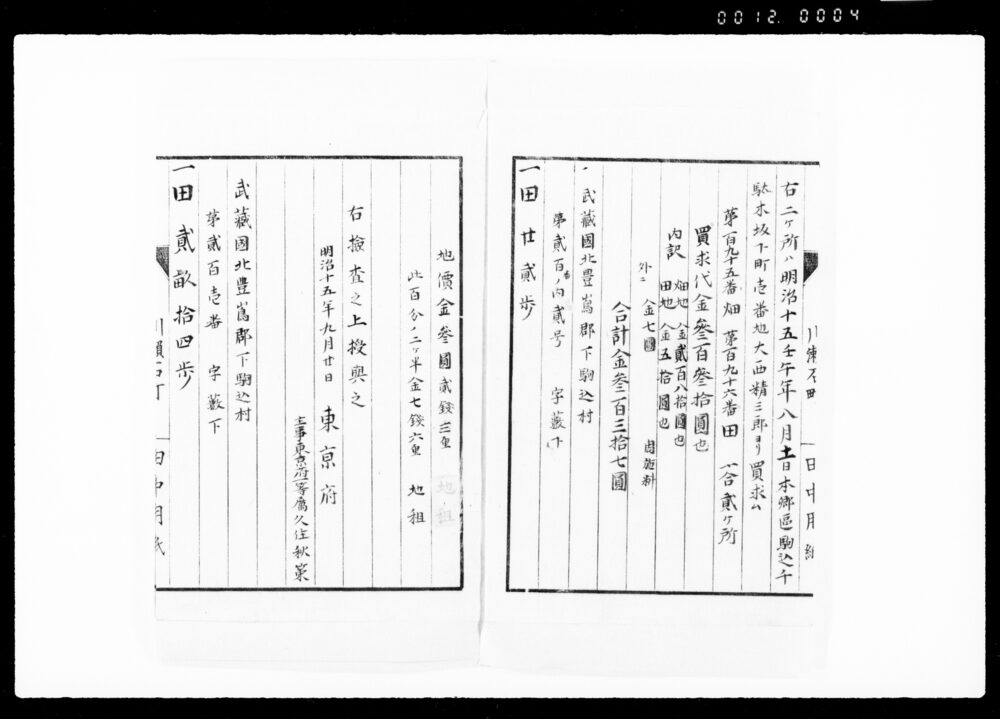 0012.0004
右二ヶ所ハ明治十五壬午年八月十一日本郷區駒込千
駄木坂下町壱番地大西精三郎ヨリ買求ム
第百九十五番畑 第百九十六番田 〆合貳ヶ所
買求代金參百參拾圓也
内訳 畑地 金貳百八拾圓也
田地 金五拾圓也
外ニ 金七圓
合計金參百三拾七圓
武藏國北豊嶌郡下駒込村
第貳百ノ内貳号 字藪下
一田 廿貳歩
地價金參圓貳錢三厘
此百分ノ二ヶ半金七錢六厘 地租
右撿査之上授與之
明治十五年九月廿日 東京府
主事東京府一等属久住秋策
武藏國北豊嶌郡下駒込村
第貳百壱番 字藪下
一田 貳畝拾四歩